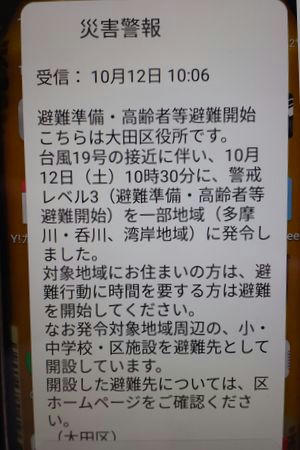 災害警報
受信： 10月12日 10:06
避難準備・高齢者等避難開始
こちらは大田区役所です。
台風19号の接近に伴い、10月
12日（土）10時30分に、警戒
レベル3（避難準備・高齢者等
避難開始）を一部地域（多摩
川・呑川、湾岸地域）に発令し
ました。
対象地域にお住まいの方は、避
難行動に時間を要する方は避難
を開始してください。
なお発令対象地域周辺の、小・
中学校・区施設を避難先として
開設しています。
開設した避難先については、区
ホームページをご確認くださ
い。
（大田区）